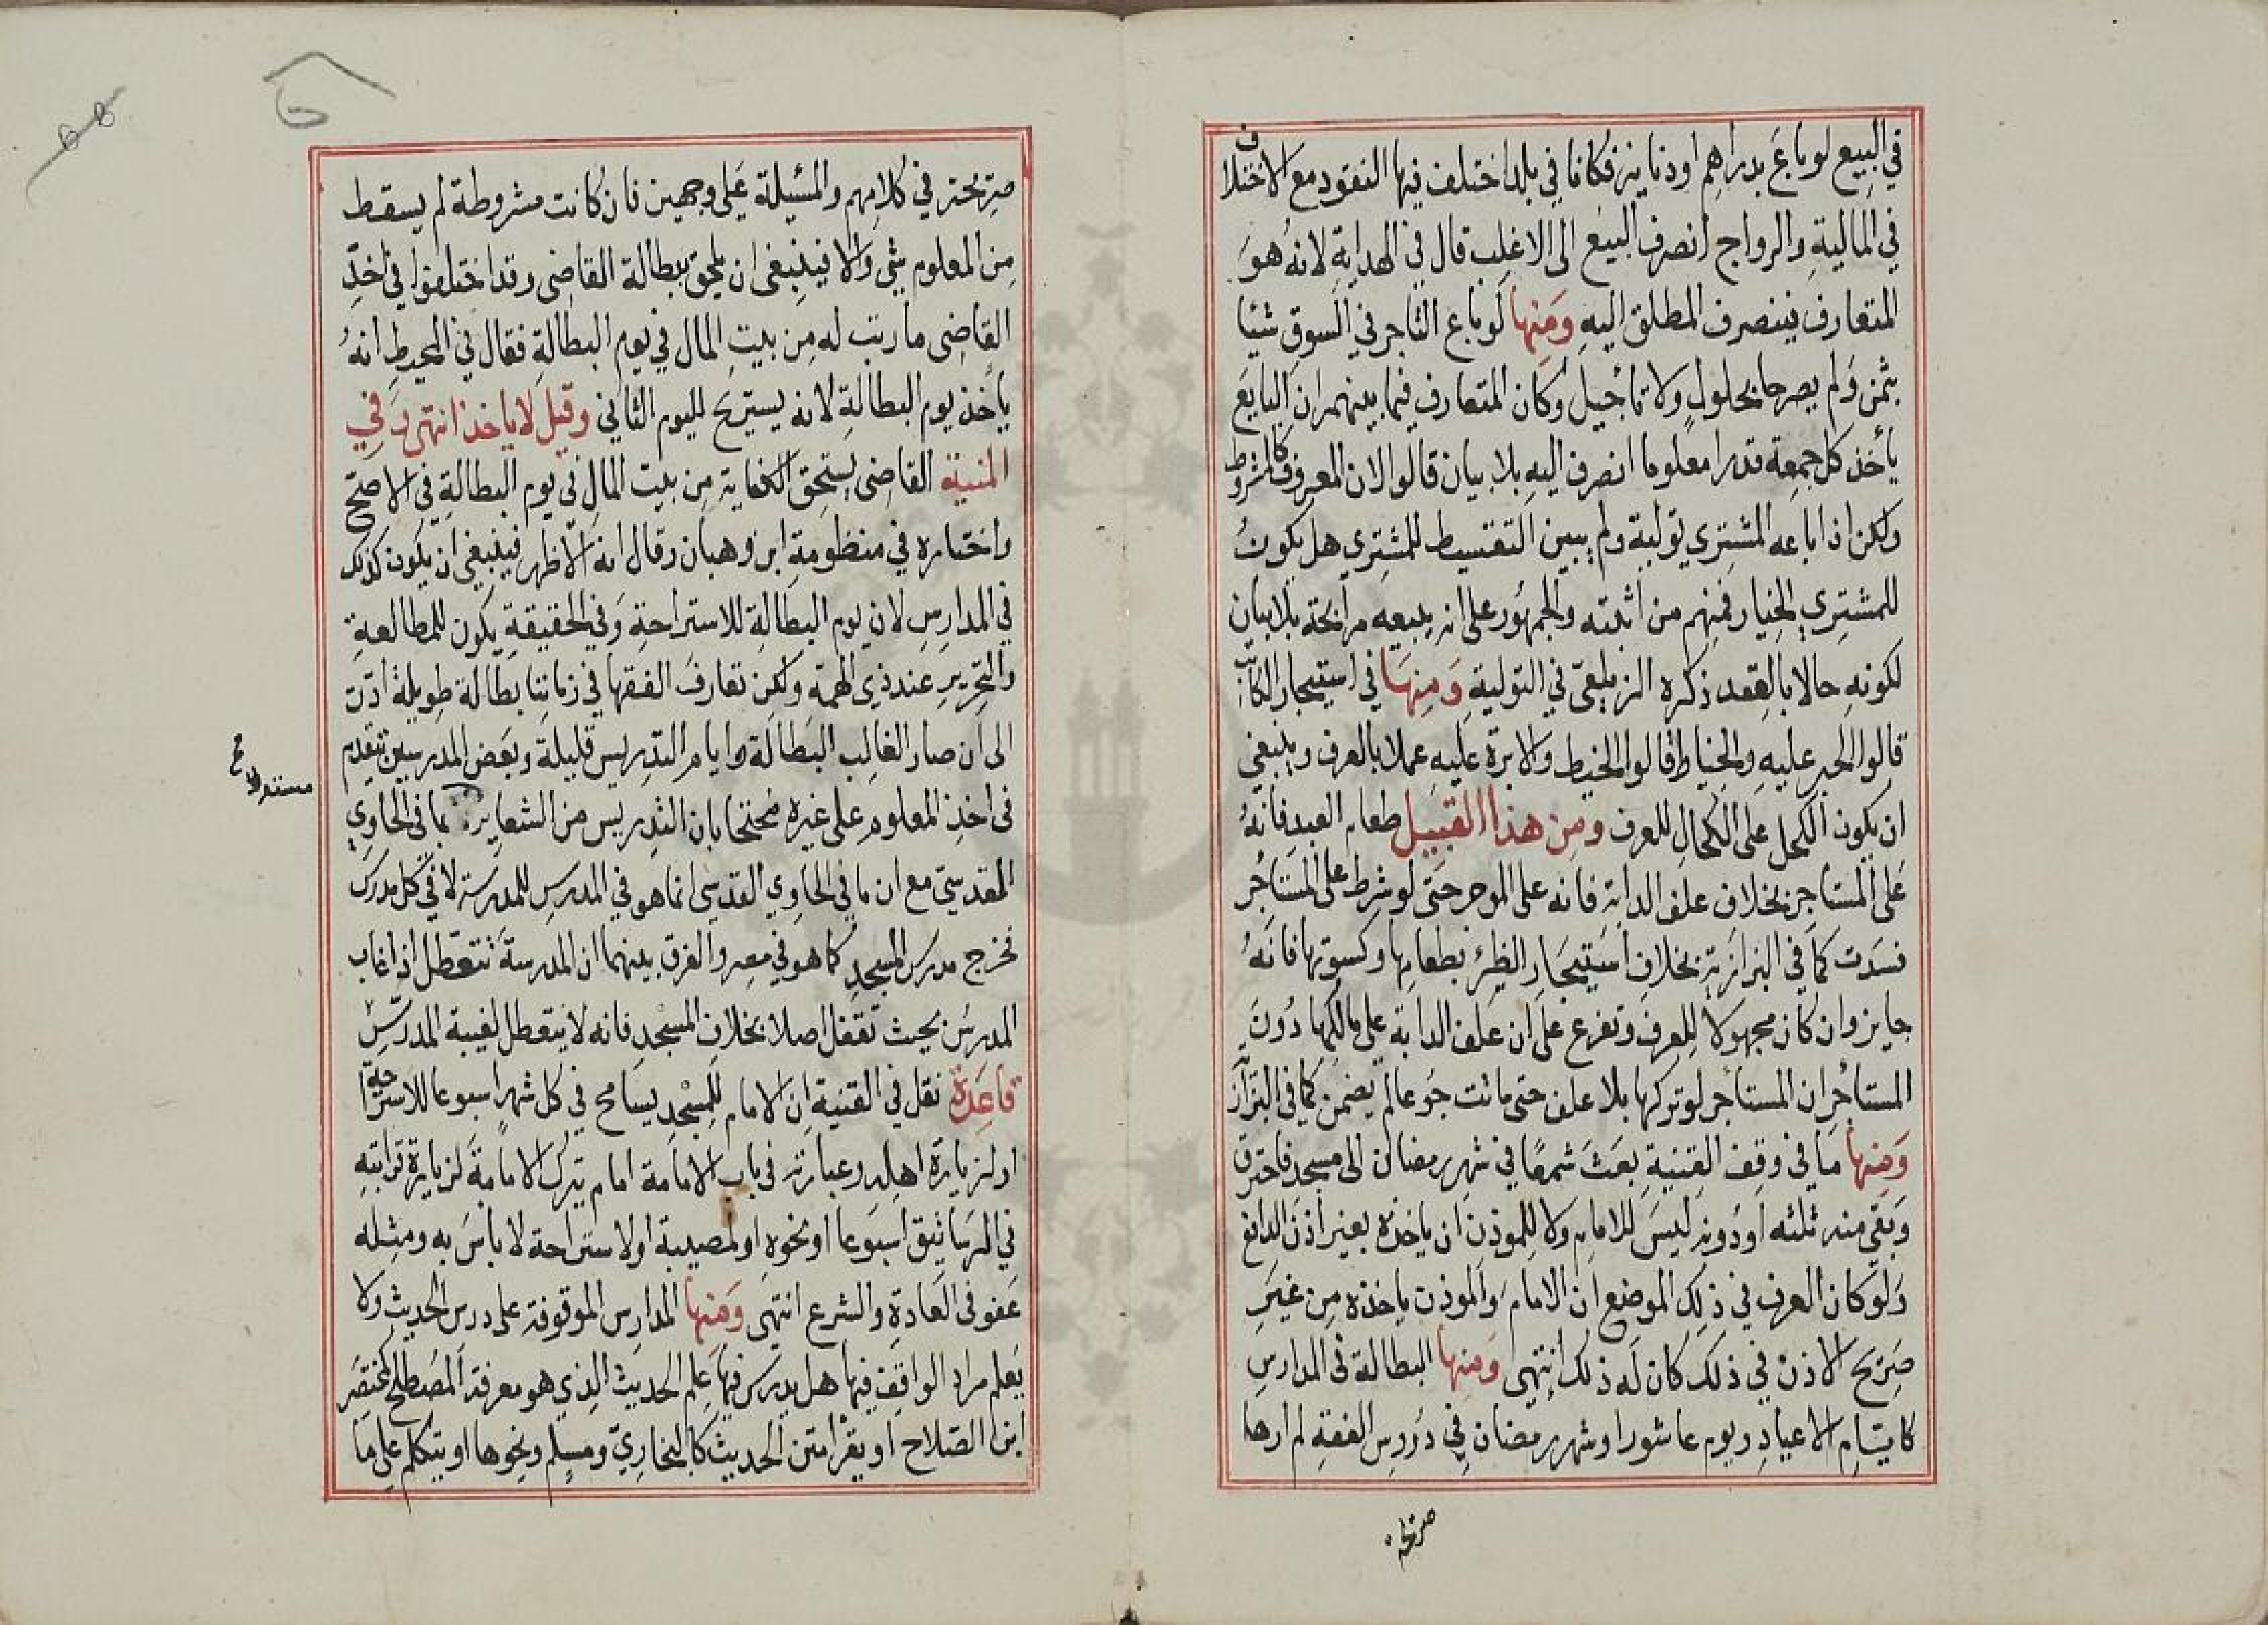 في البيع لو باع بدراهم او دنانير فكانا في بلد اختلف فيها النقود مع الاختلاف
في المالية والرواج انصرف البيع الى الاغلب قال في الهداية لانه هو
المتعارف فينصرف المطلق اليه ومنها لو باع التاجر في السوق شيئا
بثمن ولم يصرحا بحلول ولا تأجيل وكان المتعارف فيما بينهم ان البايع
يأخذ كل جمعة قدرا معلوما انصرف اليه بلا بيان قالوا لان المعروف كالمشروط
ولكن اذا باعه المشتري تولية ولم يبين التقسيط للمشتري هل يكون
للمشتري الخيار فمنهم من اثبته والجمهور على انه يبيعه مرابحة بلا بيان
لكونه حالا بالعقد ذكره الزيلعي في التولية ومنها في استيجار الكاتب
قالوا الحبر عليه والخياط قالوا الخيط والابرة عليه عملا بالعرف وينبغي
ان يكون الكحل على الكحال للعرف ومن هذا القبيل طعام العبد فانه
على المستاجر بخلاف علف الدابة فانه على الموجر حتى لو شرط على المستاجر
فسدت كما في البزازية بخلاف استيجار الظئر بطعامها وكسوتها فانه
جايز وان كان مجهولا للعرف وتفرع على ان علف الدابة على مالكها دون
المستأجر ان المستأجر لو تركها بلا علف حتى ماتت جوعا لم يضمن كما في البزاز
ومنها ما في وقف القنية بعث شمعا في شهر رمضان الى مسجد فاحترق
وبقي منه ثلثه او دونه ليس للامام ولا للموذن ان ياخذه بغير اذن الدافع
ولو كان العرف في ذلك الموضع ان الامام والموذن ياخذه من غير
صريح الاذن في ذلك كان له ذلك انتهى ومنها البطالة في المدارس
كايام الاعياد ويوم عاشورا وشهر رمضان في دروس الفقه لم ارها
صريحة
صريحة في كلامهم والمسئيلة على وجهين فان كانت مشروطة لم يسقط
من المعلوم شي والا فينبغي ان يلحق ببطالة القاضي وقد اختلفوا في اخذ
القاضي ما رتب له من بيت المال في يوم البطالة فقال في المحيط انه
ياخذ يوم البطالة لانه يستريح لليوم الثاني وقيل لا ياخذ انتهى وفي
المنية القاضي يستحق الكفاية من بيت المال في يوم البطالة في الاصح
واختاره في منظومة ابن وهبان وقال انه الاظهر فينبغي ان يكون كذلك
في المدارس لان يوم البطالة للاستراحة وفي الحقيقة يكون للمطالعة
والتحرير عند ذي الهمة ولكن تعارف الفقها في زماننا بطالة طويلة ادت
الى ان صار الغالب البطالة وايام التدريس قليلة وبعض المدرسين تتقدم
في اخذ المعلوم على غيره محتجا بان التدريس من الشعاير بما في الحاوي
المقدسي مع ان ما في الحاوي القدسي انما هو في المدرس للمدرسة لا في كل مدرس
فخرج مدرس المسجد كما هو في مصر والفرق بينهما ان المدرسة تتعطل اذا غاب
المدرس بحيث تقفل اصلا بخلاف المسجد فانه لا يتعطل لغيبة المدرس
قاعدة نقل في القنية ان الامام للمسجد يسامح في كل شهر اسبوعا للاستراحة
او لزيارة اهله وعبارته في باب الامامة امام يترك الامامة لزيارة قرابتيه
في الرساتيق اسبوعا او نحوه او لمصيبة او لاستراحة لا باس به ومثله
عفو في العادة والشرع انتهى ومنها المدارس الموقوفة على درس الحديث ولا
يعلم مراد الواقف فيها هل يدرس فيها علم الحديث الذي هو معرفة المصطلح كمختصر
ابن الصلاح او يقرا متن الحديث كالبخاري ومسلم ونحوها او يتكلم على ما